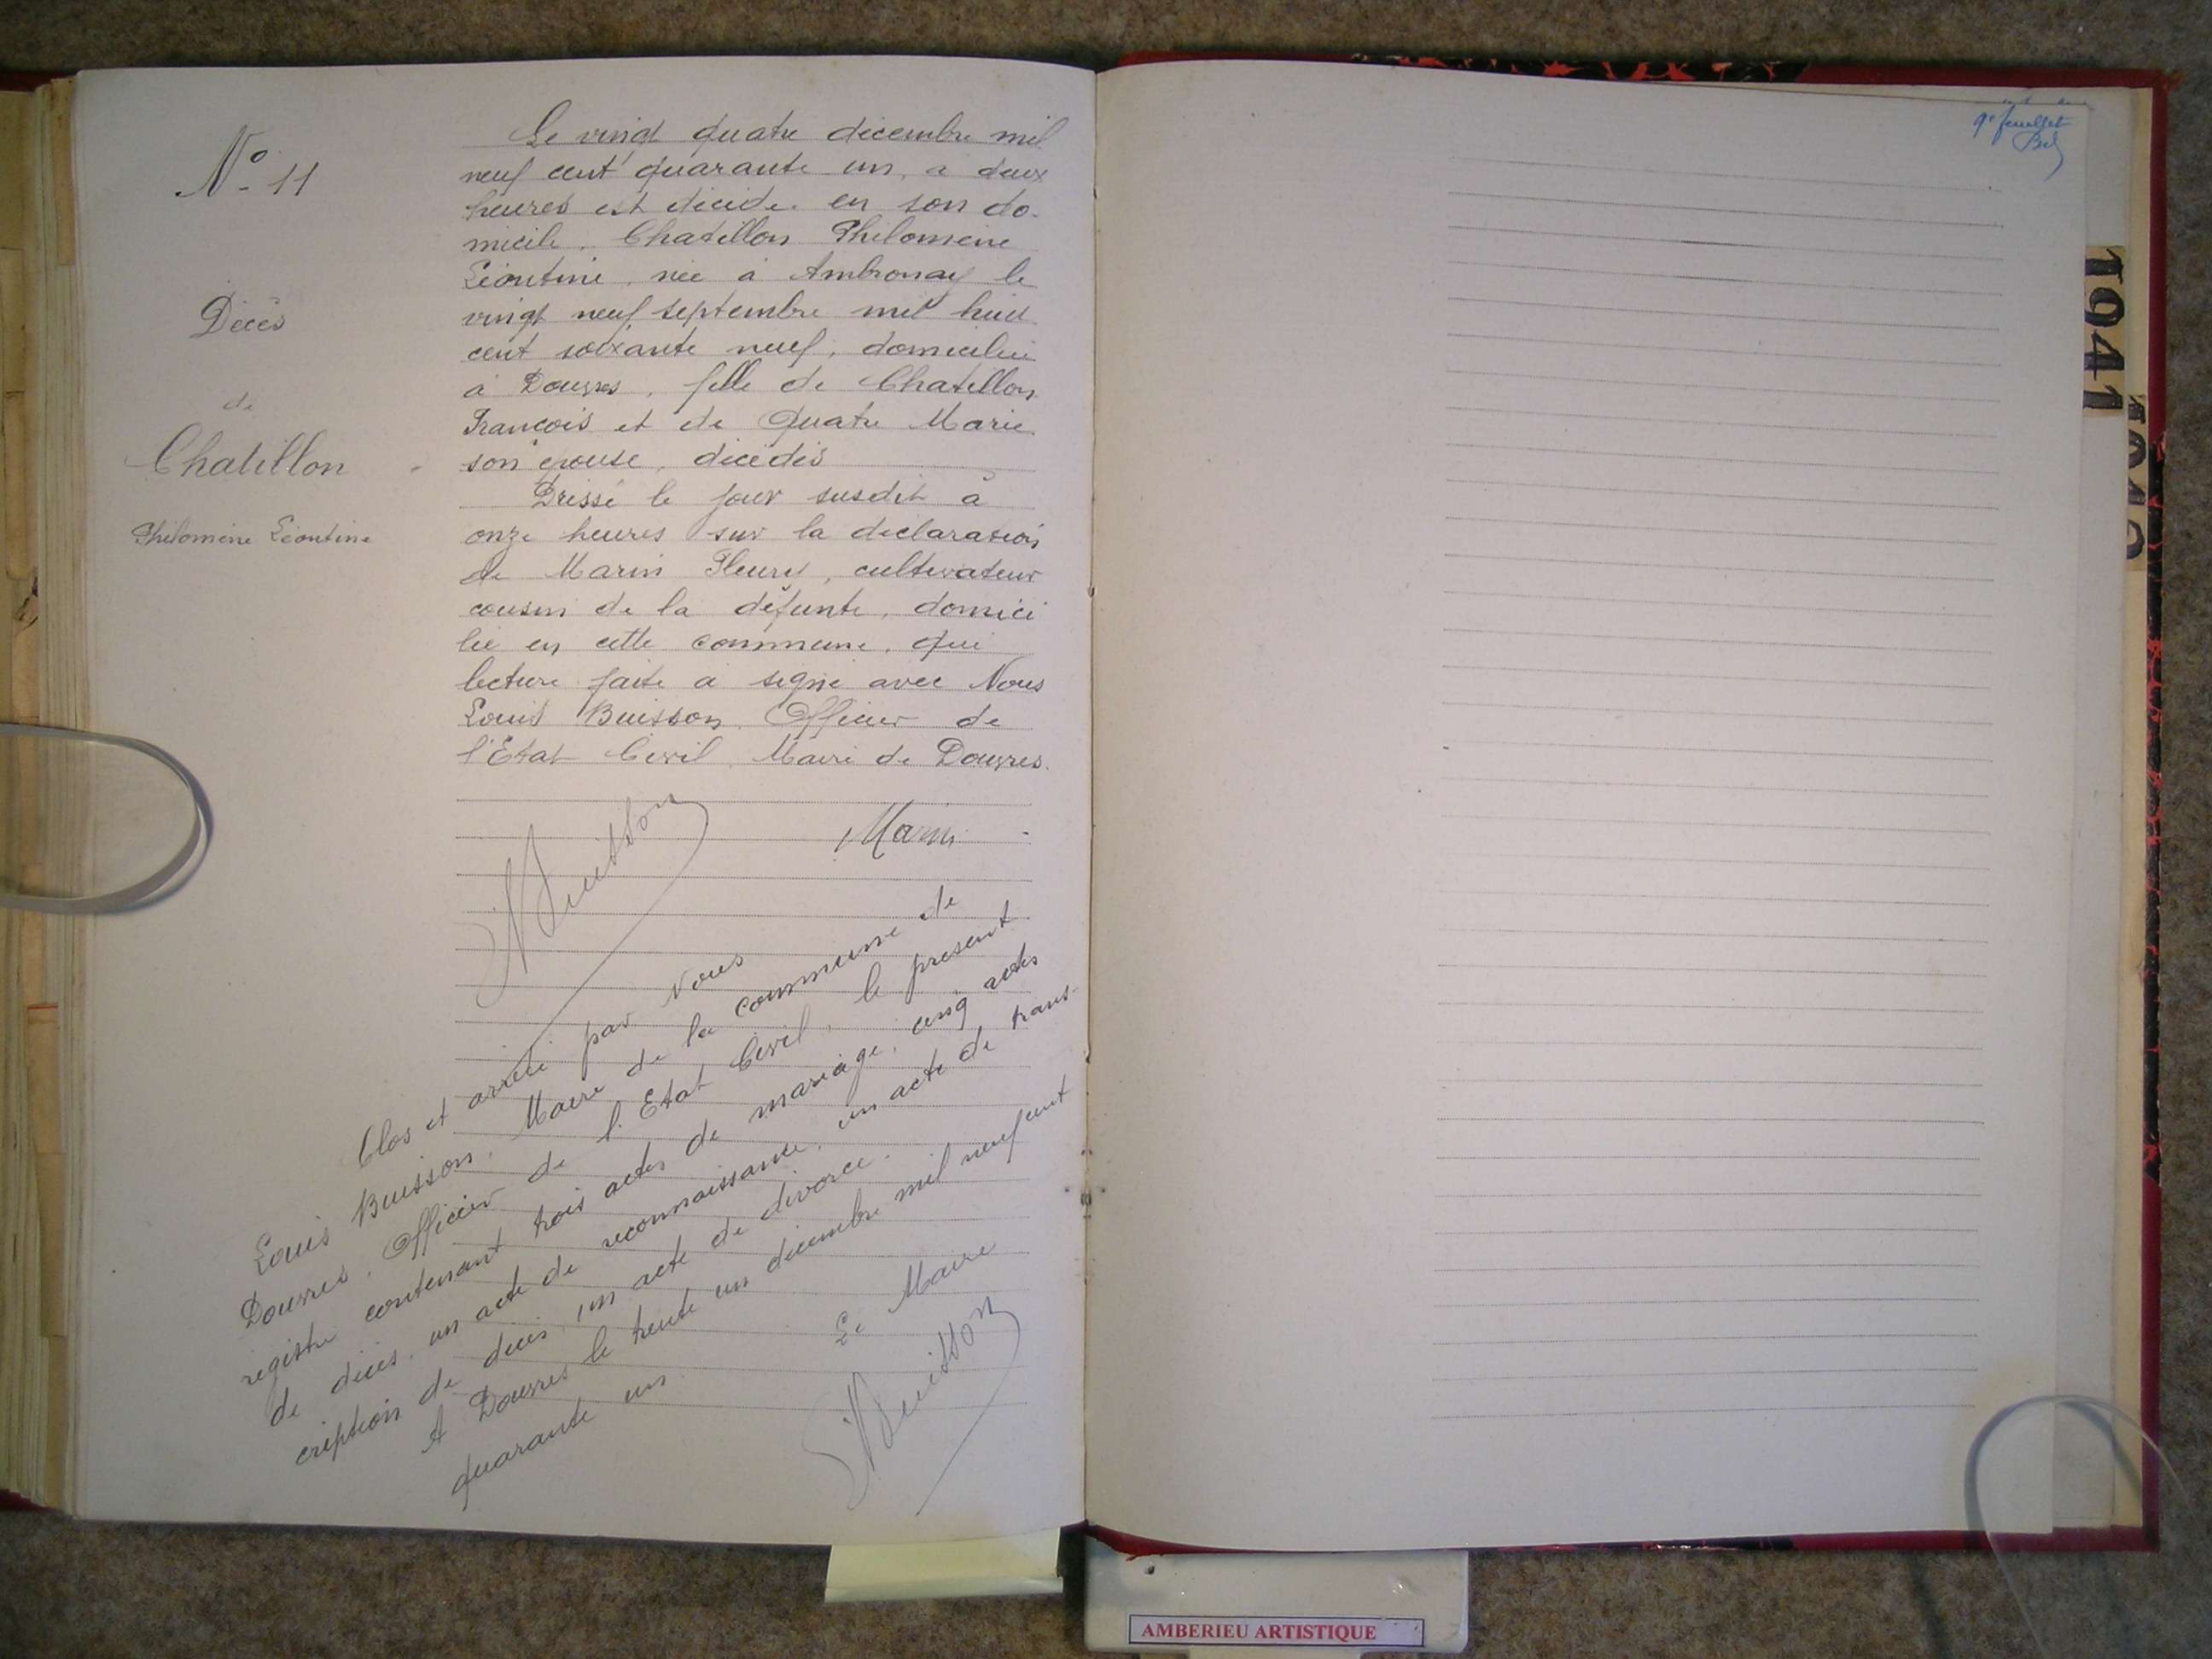 N° 11
Décès
de
Chatillon
Philomène Léontine
Le vingt quatre décembre mil
neuf cent quarante un, à deux
heures est décédé. en son do-
micile. Chatillon Philomène
Léontine, née à Ambronay le
vingt neuf septembre mil huit
cent soixante neuf, domiciliée
à Douvres, fille de Chatillon
François et de Quatre Marie
son épouse, décédés
Dressé le jour susdit à
onze heures sur la déclaration
de Marin Fleury, cultivateur
cousin de la défunte, domici
lié en cette commune, qui
lecture faite a signé avec Nous
Louis Buisson, Officier de
l'Etat Civil, Maire de Douvres.
Buisson
Marin
Clos et arrêté par Nous
Louis Buisson, Maire de la commune de
Douvres, Officier de l'Etat Civil, le présent
registre contenant trois actes de mariage, cinq actes
de décès, un acte de reconnaissance, un acte de trans-
cription de décès, un acte de divorce.
A Douvres le trente un décembre mil neuf cent
quarante un
Le Maire
Buisson
9e feuillet
1941
AMBERIEU ARTISTIQUE